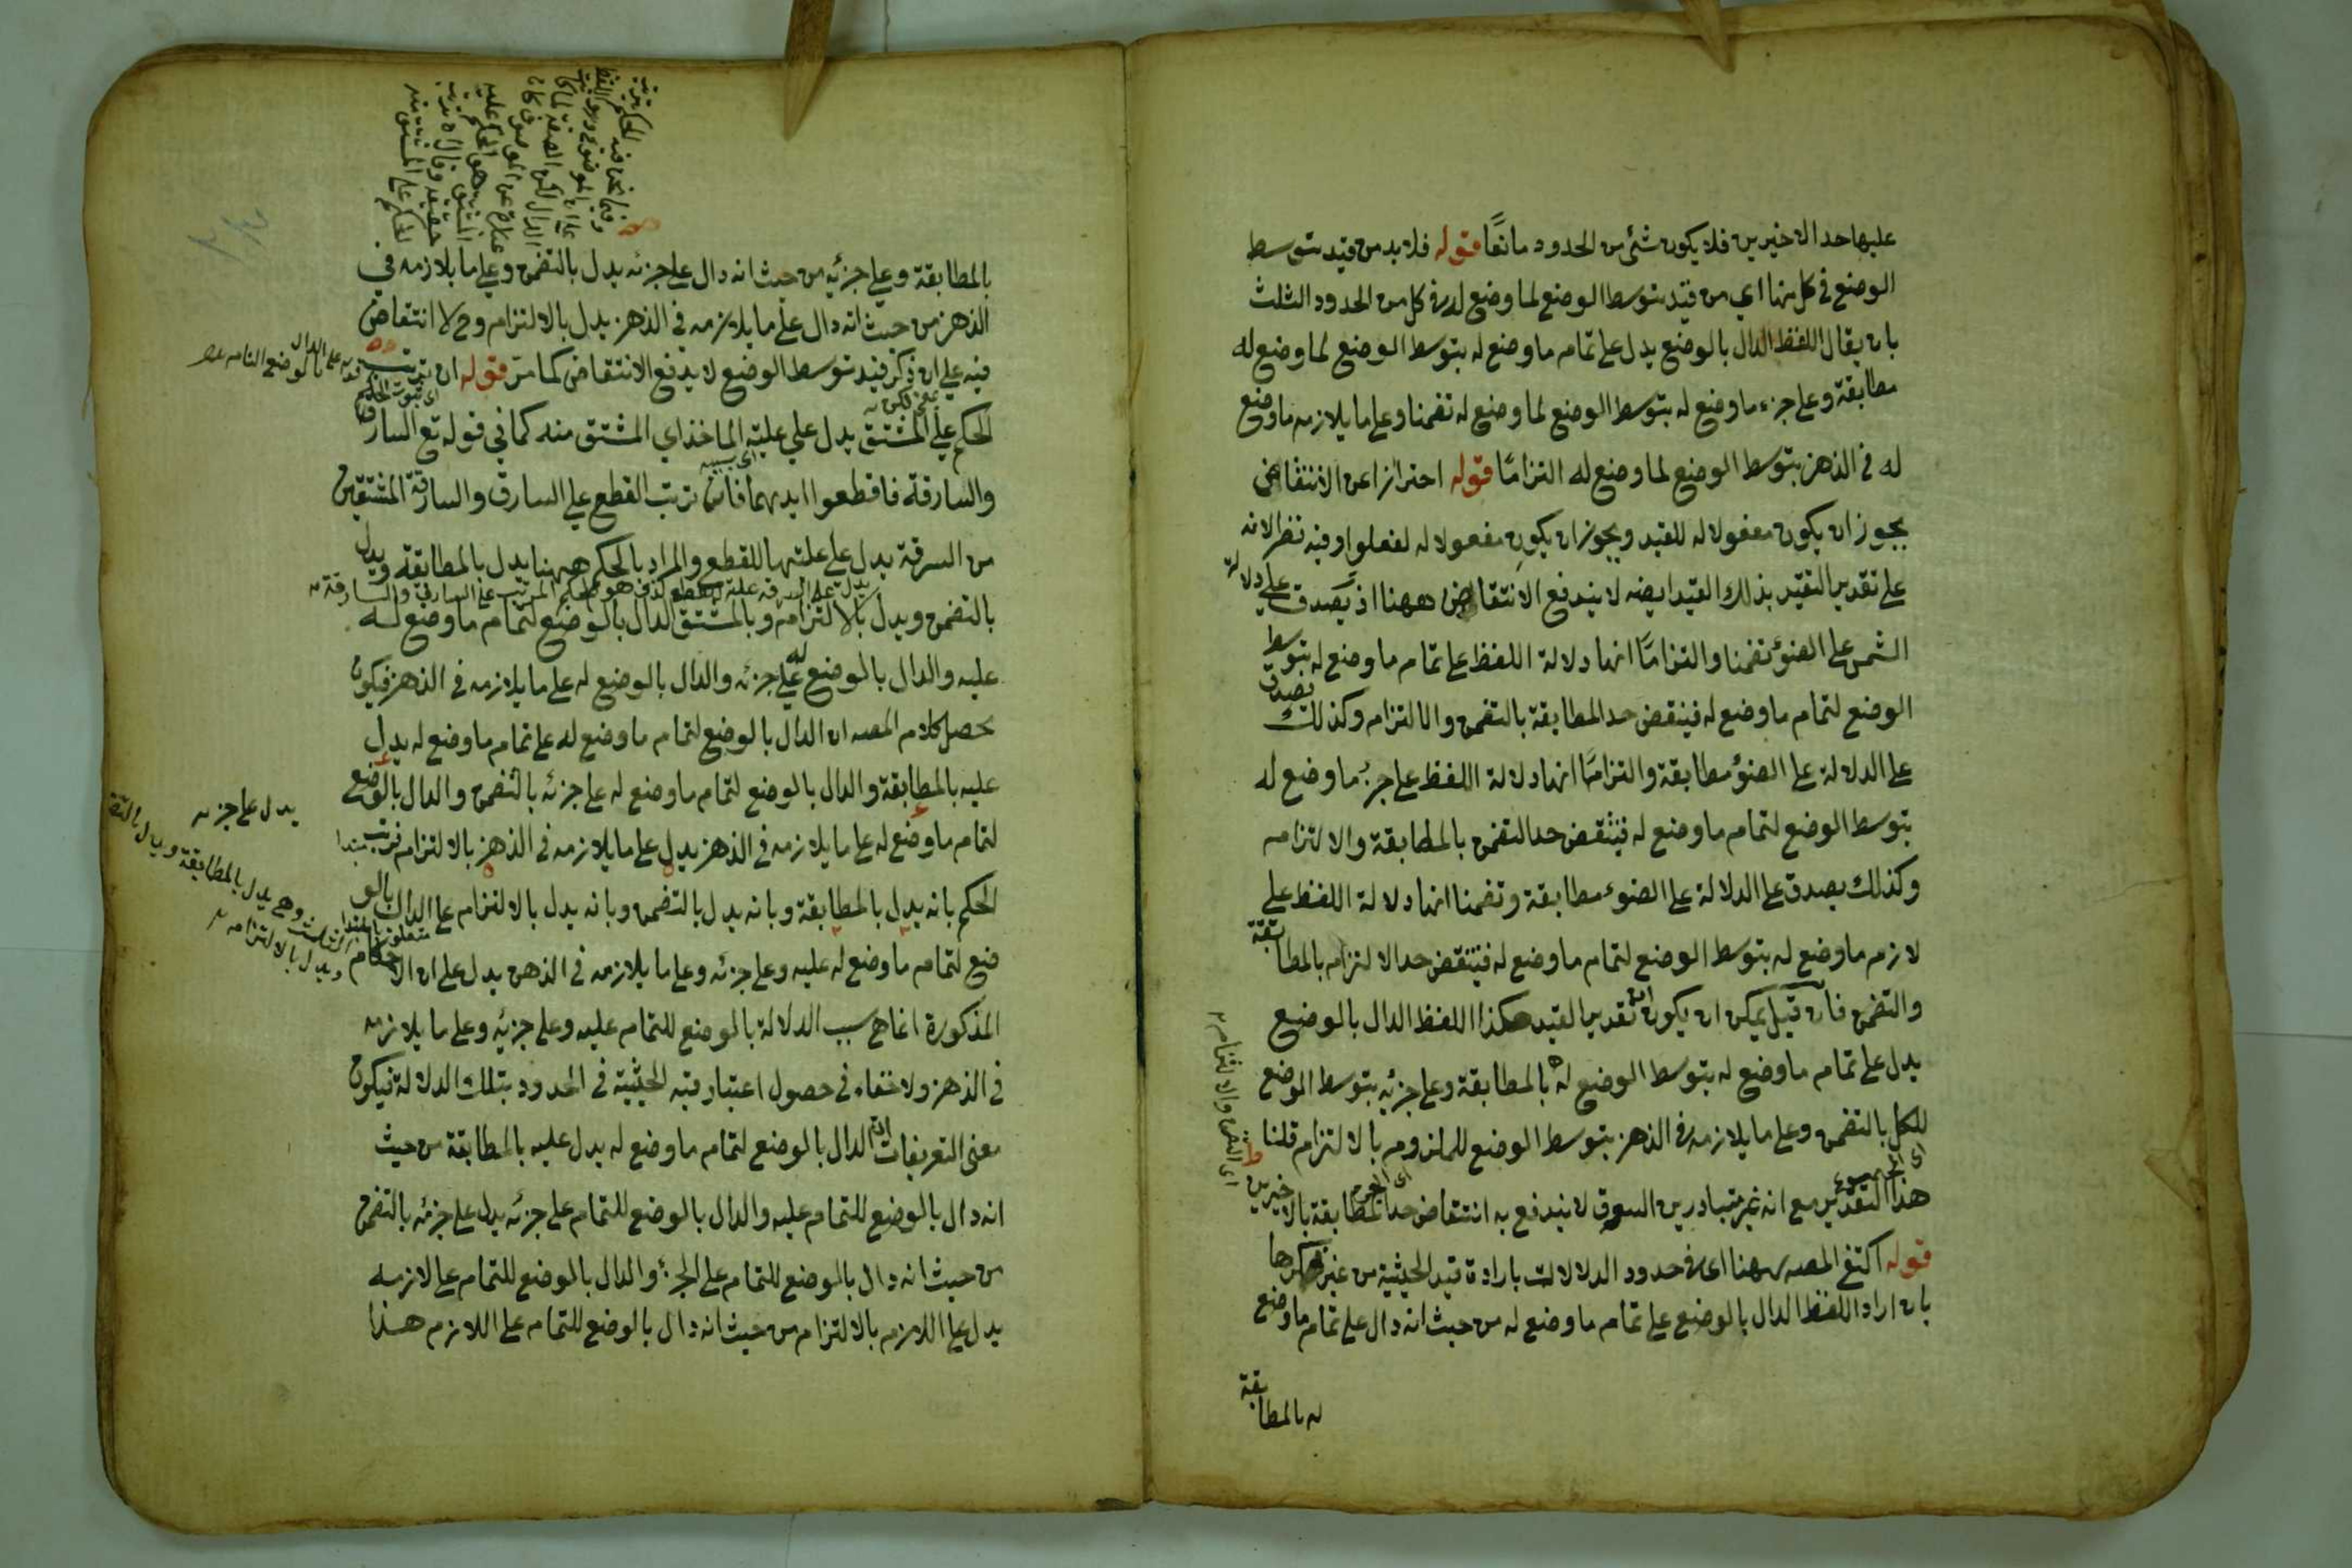 عليها حد الاخيرين فلا يكون شئ من الحدود مانعًا قوله فلا بد من قيد بتوسط
الوضع في كل منها اي من قيد بتوسط الوضع لما وضع له في كل من الحدود الثلث
بان يقال اللفظ الدال بالوضع يدل على تمام ما وضع له بتوسط الوضع لما وضع له
مطابقة وعلى جزء ما وضع له بتوسط الوضع لما وضع له تضمنا وعلى ما يلازمه ما وضع
له في الذهن بتوسط الوضع لما وضع له التزامًا قوله احترازا عن الانتقاض
يجوز ان يكون مفعولا له للقيد ويجوز ان يكون مفعولا له لفعلوا وفيه نظر لانه
على تقدير التقيد بذلك القيد ايضه لا يندفع الانتقاض ههنا اذ يصدق على دلالة
الشمس على الضوء تضمنا والتزامًا انها دلالة اللفظ على تمام ما وضع له بتوسط
الوضع لتمام ما وضع له فينقض حد المطابقة بالتضمن والالتزام وكذلك يصدق
على الدلالة على الضوء مطابقة والتزامًا انها دلالة اللفظ على جزء ما وضع له
بتوسط الوضع لتمام ما وضع له فينتقض حد التضمن بالمطابقة والالتزام
وكذلك يصدق على الدلالة على الضوء مطابقة وتضمنا انها دلالة اللفظ على
لازم ما وضع له بتوسط الوضع لتمام ما وضع له فينتقض حد الالتزام بالمطابقة
والتضمن فان قيل يمكن ان يكون تقدير القيد هكذا اللفظ الدال بالوضع
يدل على تمام ما وضع له بتوسط الوضع له بالمطابقة وعلى جزئه بتوسط الوضع
للكل بالتضمن وعلى ما يلازمه في الذهن بتوسط الوضع للملزوم بالالتزام قلنا
هذا التقدير مع انه غير متبادر من السوق لا يندفع به انتقاض حد المطابقة بالاخيرين
قوله اكتفى المصه ههنا اى في حدود الدلالات بارادة قيد الحيثية من غير ذكرها
بان اراد اللفظ الدال بالوضع على تمام ما وضع له من حيث انه دال على تمام ما وضع
له بالمطابقة
بالمطابقة وعلى جزئه من حيث انه دال على جزئه يدل بالتضمن وعلى ما يلازمه في
الذهن من حيث انه دال على ما يلازمه في الذهن يدل بالالتزام وح لا انتقاض
فيه على ان ذكر قيد توسط الوضع لا يدفع الانتقاض كما مر قوله ان ترتب
الحكم على المشتق يدل على علية الماخذ اي المشتق منه كما في قوله تع السارق
والسارقة فاقطعوا ايديهما فان ترتب القطع على السارق والسارقة المشتقين
من السرقة يدل على علتها للقطع والمراد بالحكم ههنا يدل بالمطابقة ويدل
بالتضمن ويدل بالالتزام وبالمشتق الدال بالوضع لتمام ما وضع له
عليه والدال بالوضع له على جزئه والدال بالوضع له على ما يلازمه في الذهن فيكون
محصل كلام المصه ان الدال بالوضع لتمام ما وضع له على تمام ما وضع له يدل
عليه بالمطابقة والدال بالوضع لتمام ما وضع له على جزئه بالتضمن والدال بالوضع
لتمام ما وضع له على ما يلازمه في الذهن يدل على ما يلازمه في الذهن بالالتزام فترتب
الحكم بانه يدل بالمطابقة وبانه يدل بالتضمن وبانه يدل بالالتزام على الدال بالو
ضع لتمام ما وضع له عليه وعلى جزئه وعلى ما يلازمه في الذهن يدل على ان الاحكام
المذكورة انما هي سبب الدلالة بالوضع للتمام عليه وعلى جزئه وعلى ما يلازمه
في الذهن ولا خفاء في حصول اعتبار قيد الحيثية في الحدود بتلك الدلالة فيكون
معنى التعريفات ان الدال بالوضع لتمام ما وضع له يدل عليه بالمطابقة من حيث
انه دال بالوضع للتمام عليه والدال بالوضع للتمام على جزئه يدل على جزئه بالتضمن
من حيث انه دال بالوضع للتمام على الجزء والدال بالوضع للتمام على لازمه
يدل على اللازم بالالتزام من حيث انه دال بالوضع للتمام على اللازم هذا
يدل على جزئه
وهي يدل بالمطابقة ويدل بالتضمن
ويدل بالالتزام